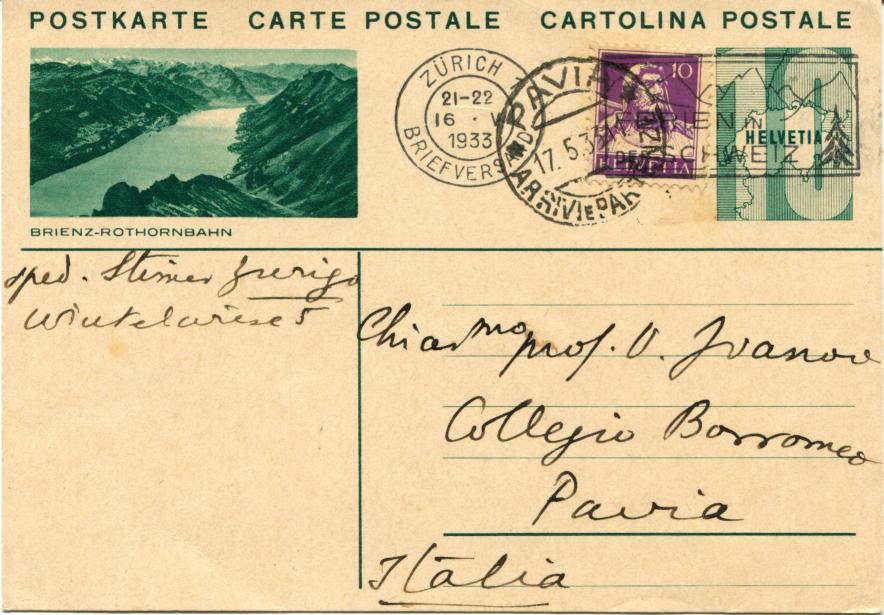 POSTKARTE CARTE POSTALE CARTOLINA POSTALE
ZÜRICH
21-22
16 · V
1933
BRIEFVERSAND
PAVIA
17.5.33
ARRIVI E PAR
10
HELVETIA
FERIEN IN
DER SCHWEIZ
HELVETIA
10
BRIENZ-ROTHORNBAHN
sped. Steiner Zurigo
5
Chiar.mo prof. V. Ivanov
Collegio Borromeo
Pavia
Italia